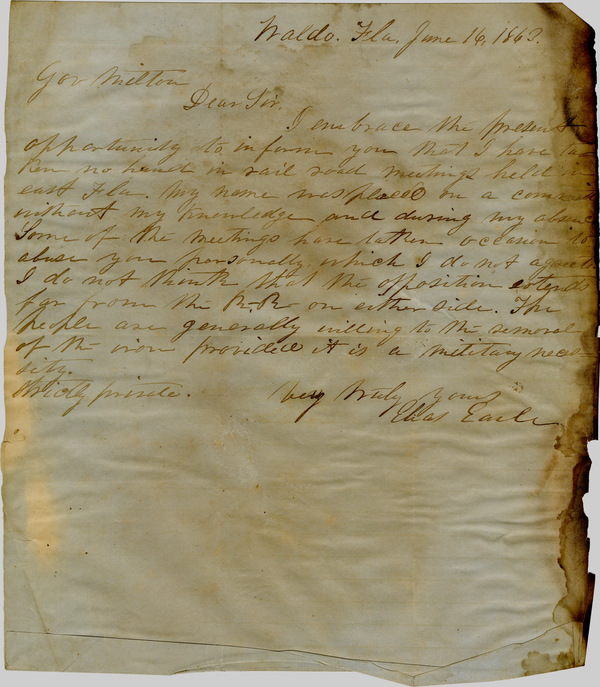 Waldo. Fla. June 16, 1863.
Gov Milton
Dear Sir.
I embrace the present
opportunity to inform you that I have ta
ken no hand in rail road meetings held in
east Fla. My name was placed on a
without my knowledge and during my absence
Some of the meetings have taken occasion to
abuse you personally which I do not
I do not think that the opposition extends
far from the R.R. on either side. The
people are generally willing to the removal
of the iron provided it is a military neces
sity.
Strictly private. Very truly yours
Elias Earle